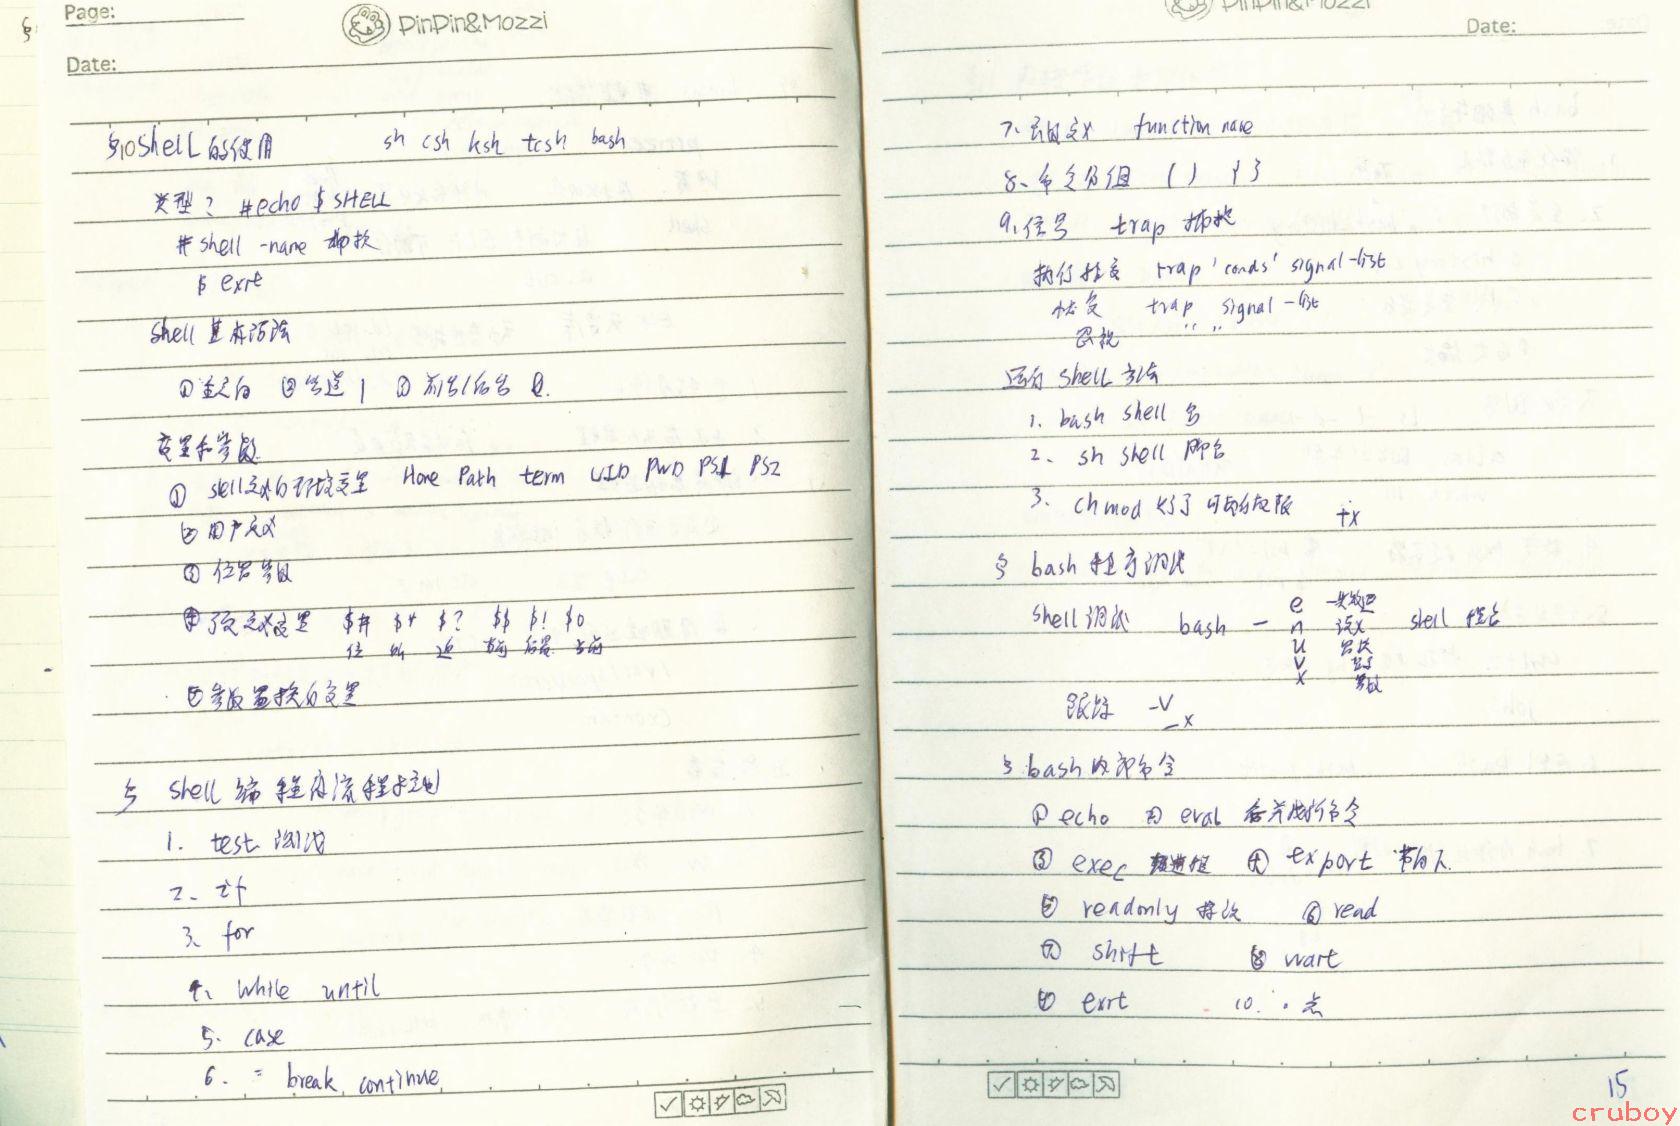 Page:
PinPin&Mozzi
Date:
§10 Shell的使用 sh csh ksh tcsh bash
类型? #echo $SHELL
#shell -name 切换
$ exit
Shell 基本语法
①重定向 ②管道 | ③前台/后台 &.
变量和参数
① shell定义的环境变量 Home Path term UID PWD PS1 PS2
② 用户定义
③ 位置参数
④ 预定义变量 $# $* $? $$ $! $0
位 所
⑤参数置换的变量
§ Shell 编程及流程控制
1. test 测试
2. if
3. for
4. while until
5. case
6. = break continue
PinPin&Mozzi
Date:
7. 函数定义 function name
8. 命令分组 ( ) { }
9. 信号 trap 捕捉
执行指定 trap 'comds' signal-list
恢复 trap signal-list
忽视 " "
运行 Shell 方法
1. bash shell 名
2. sh shell 脚名
3. chmod 文件 可执行权限 +x
§ bash 程序调试
Shell 调试 bash - e n u v x shell 程名
跟踪 -v
-x
§ bash 内部命令
① echo ② eval
③ exec ④ export
⑤ readonly ⑥ read
⑦ shift ⑧ wait
⑨ exit 10. . 点
15
cruboy